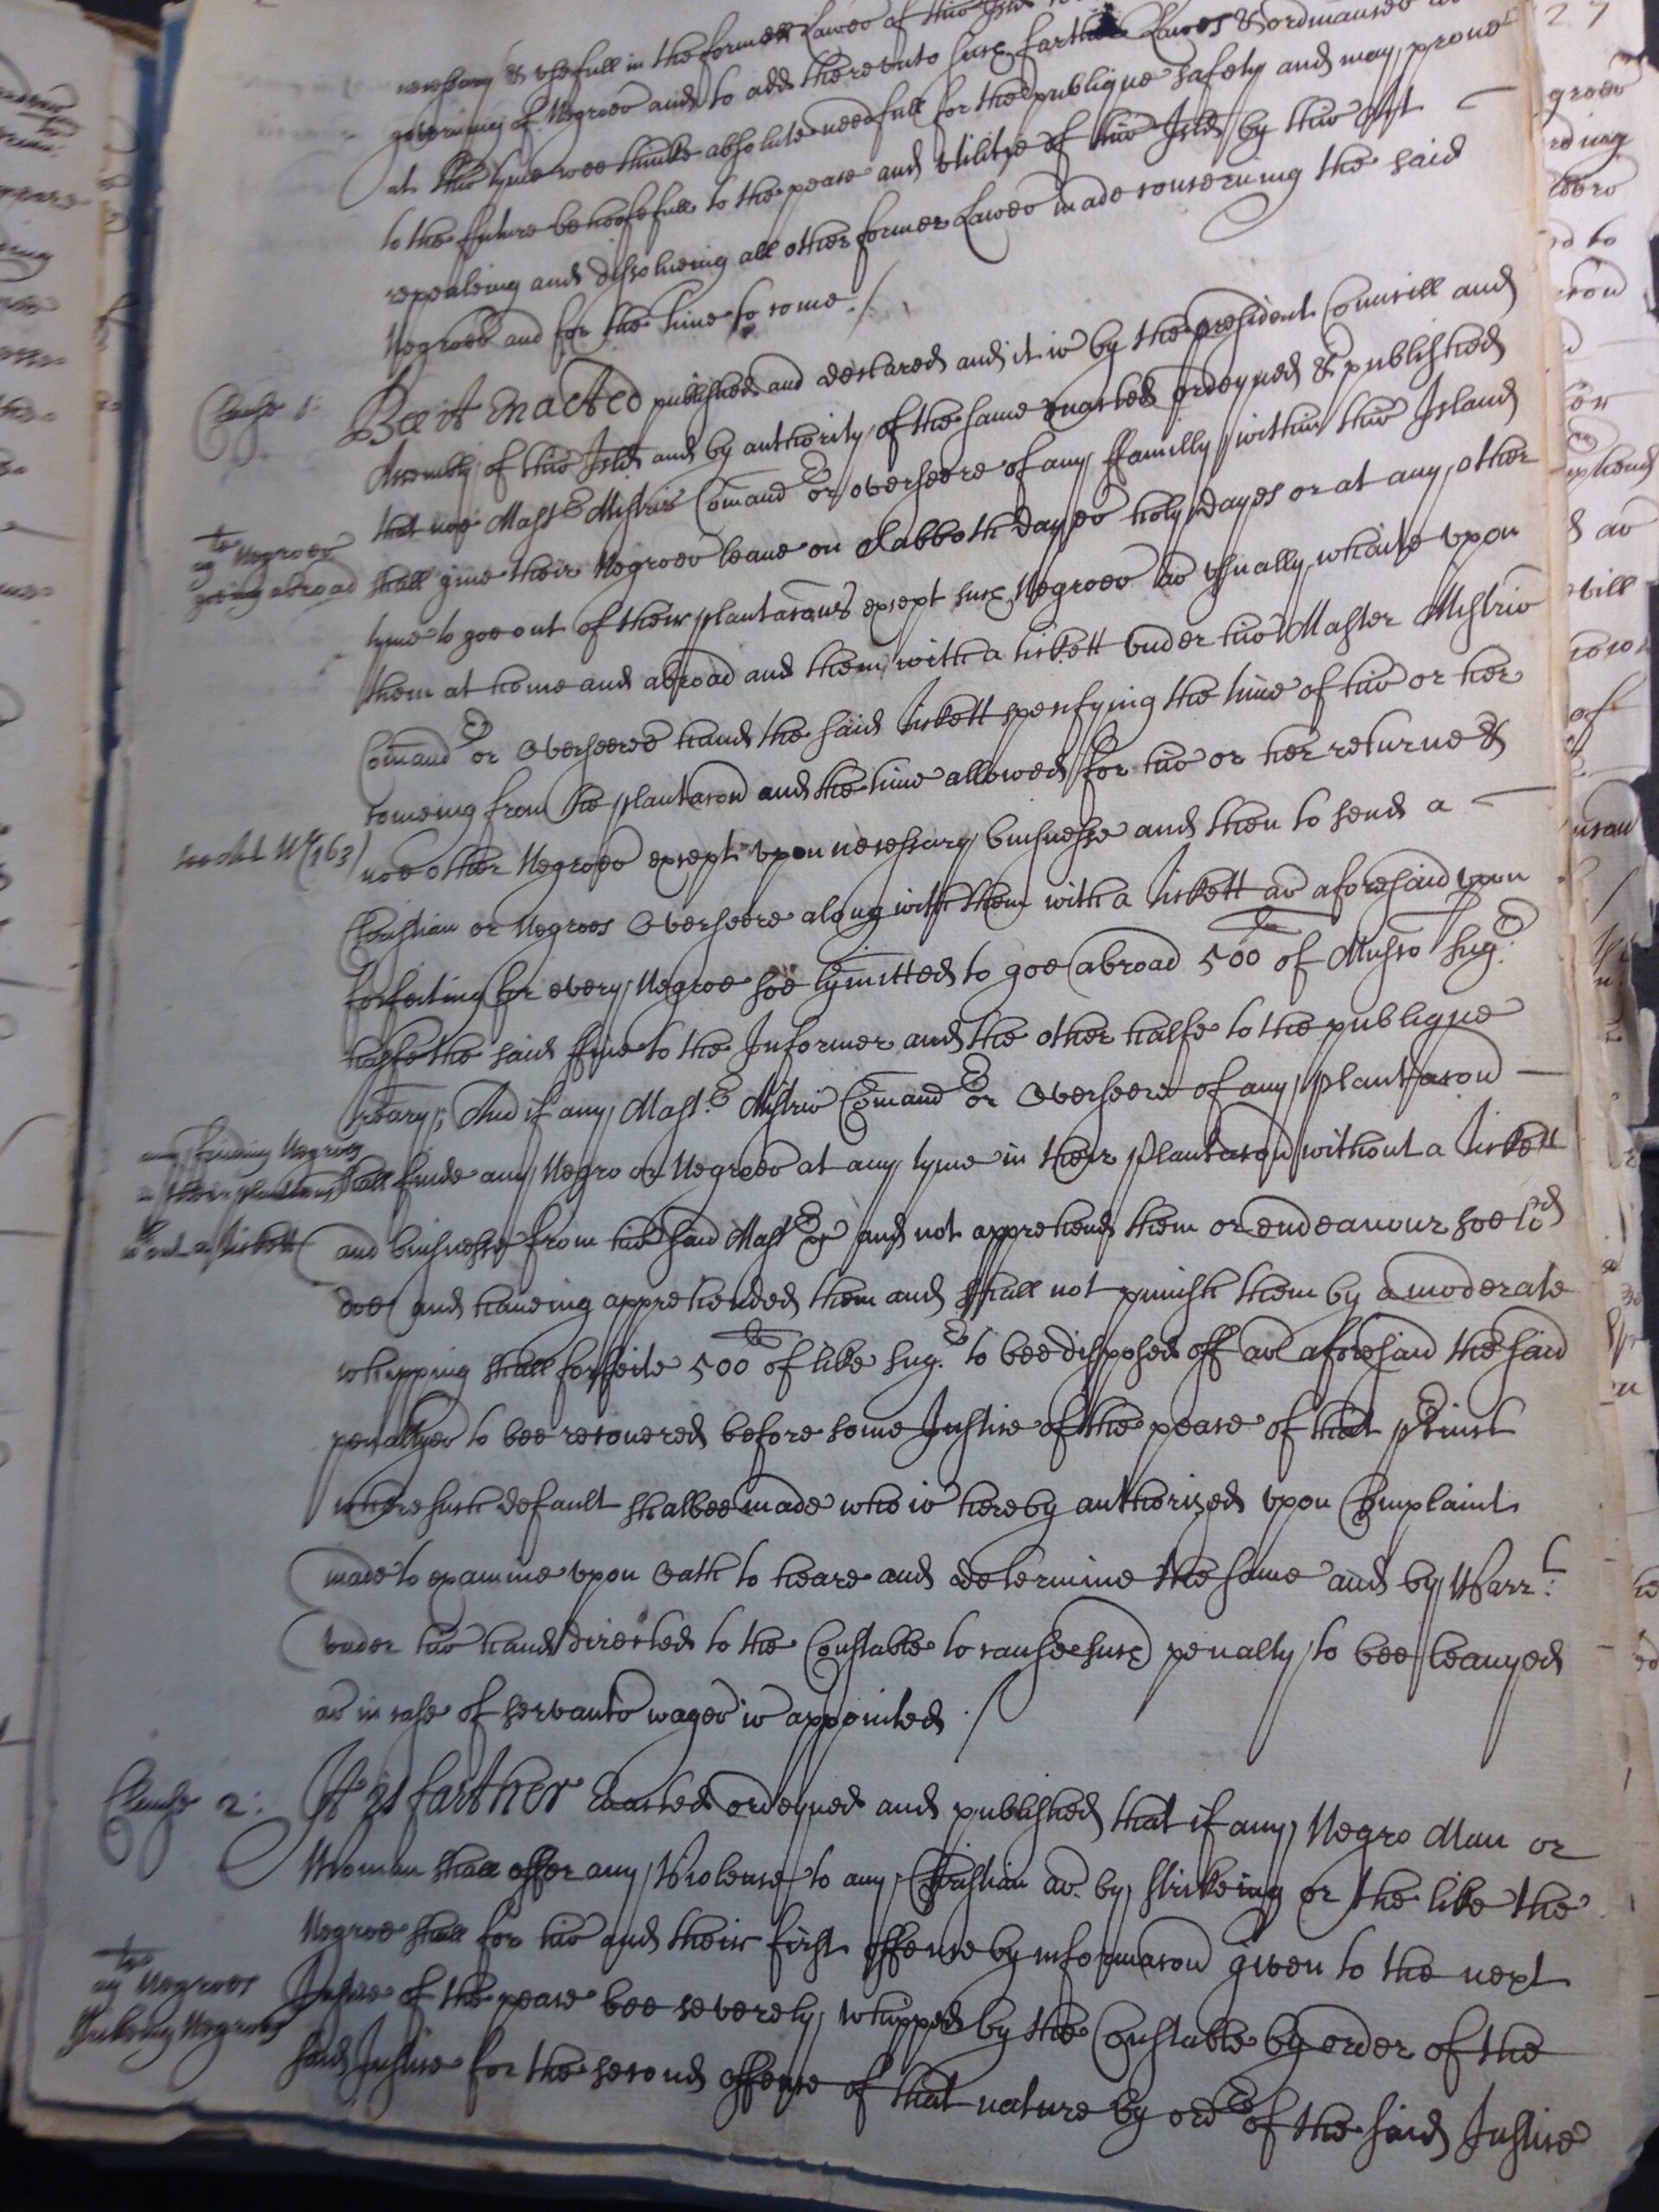 necessary & usefull in the former Lawes of this Isld
governing of Negroes and to add thereunto such farther Lawes & ordinances as
at this tyme wee thinke absolute needfull for the publique safety and may prove
to the future behoofefull to the peace and utilitye of this Isld by this Act
repealeing and dissolueing all other former Lawes made concerning the said
Negroes and for the time to come ./.
Clause 1: Bee it Enacted published and declared and it is by the president Councill and
Assembly of this Isld and by authority of the same enacted ordeyned & published
that noe Mastr Mistris Comandr or overseere of any ffamilly within this Island
to Negroes
going abroad
shall give their Negroes leave on Sabboth dayes holy dayes or at any other
tyme to goe out of their plantacons except such Negroes as usually whaite upon
them at home and abroad and them with a tickett under his Master Mistris
Comandr or Overseeres hand the said Tickett specifying the time of his or her
comeing from the plantacon and the time allowed for his or her returne &
noe other Negroes except upon necessary buisnesse and then to send a
Christian or Negroes Overseere along with them with a Tickett as aforesaid upon
forfeiting for every Negroe soe lymitted to goe abroad 500 lb of Musco Sugr:
halfe the said ffine to the Informer and the other halfe to the publique
treary; And if any Mastr: Mistris Comandr or Overseere of any plantacon
any finding Negroes
in their plantacons
wthout a Tickett
shall finde any Negro or Negroes at any tyme in their plantacon without a Tickett
and buisnesse from his said Mastr &c and not apprehend them or endeavour soe to
doe and haveing apprehended them and shall not punish them by a moderate
whipping shall forfeite 500 lb of like Sugr: to bee disposed off as aforesaid the said
penaltyes to bee recovered before some Justice of the peace of that precinct
where such default shalbee made who is hereby authorized upon Complaint
made to examine upon Oath to heare and determine the same and by Warrt:
under his hand directed to the Constable to cause such penalty to bee leavyed
as in case of servants wages is appointed ./
Clause 2: It is farther Enacted ordeyned and published that if any Negro Man or
Woman shall offer any Violence to any Christian as by strikeing or the like the
Negroe shall for his and their first offence by informacon given to the next
Negroes
Strikeing Negroes
Justice of the peace bee severely whipped by the Constable by order of the
said Justice for the second offence of that nature by ordr of the said Justice